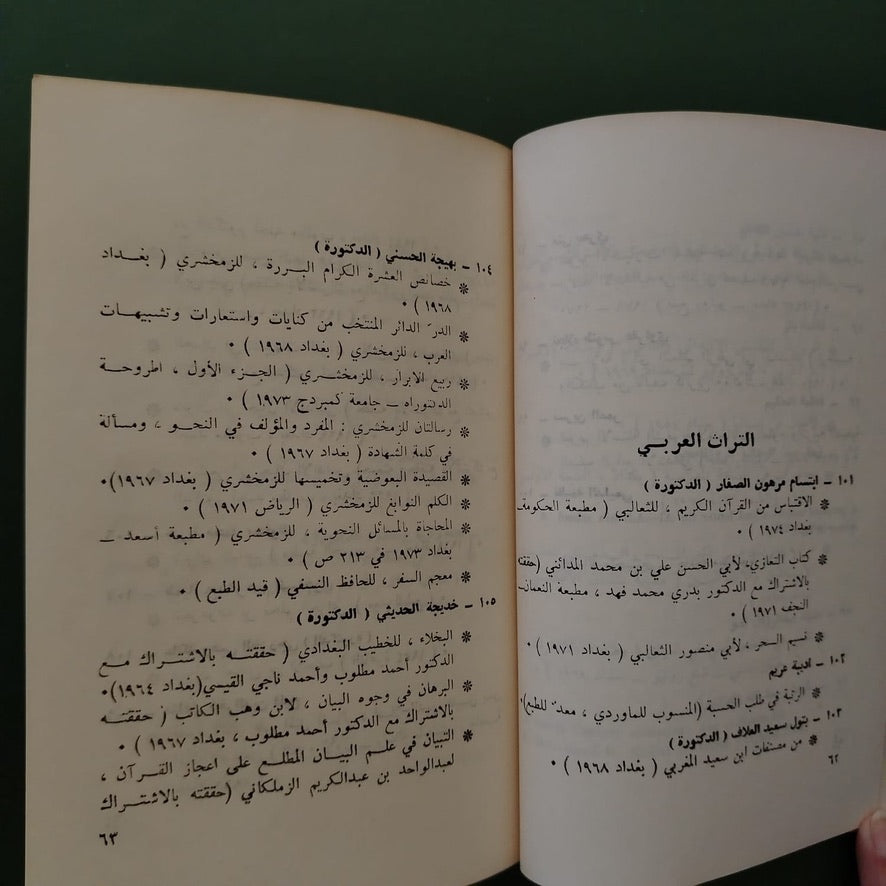 التراث العربي
١٠١ - ابتسام مرهون الصفار ( الدكتورة )
* الاقتباس من القرآن الكريم ، للثعالبي ( مطبعة الحكومة ـ
بغداد ١٩٧٤ ) ٠
* كتاب التعازي، لأبي الحسن علي بن محمد المدائني (حققته
بالاشتراك مع الدكتور بدري محمد فهد ، مطبعة النعمان ـ
النجف ١٩٧١ ) ٠
* نسيم السحر ، لأبي منصور الثعالبي ( بغداد ١٩٧١ ) ٠
١٠٢ - اديبة عريم
* الرتبة في طلب الحسبة (المنسوب للماوردي ، معدّ للطبع)٠
١٠٣ - بتول سعيد العلاف ( الدكتورة )
* من مصنفات ابن سعيد المغربي ( بغداد ١٩٦٨ ) ٠
٦٢
١٠٤ - بهيجة الحسني ( الدكتورة )
* خصائص العشرة الكرام البررة ، للزمخشري ( بغداد
١٩٦٨ ) ٠
* الدرّ الدائر المنتخب من كنايات واستعارات وتشبيهات
العرب ، للزمخشري ( بغداد ١٩٦٨ ) ٠
* ربيع الابرار ، للزمخشري ( الجزء الأول ، اطروحة
الدكتوراه ـ جامعة كمبردج ١٩٧٣ ) ٠
* رسالتان للزمخشري : المفرد والمؤلف في النحو ، ومسألة
في كلمة الشهادة ( بغداد ١٩٦٧ ) ٠
* القصيدة البعوضية وتخميسها للزمخشري ( بغداد ١٩٦٧)٠
* الكلم النوابغ للزمخشري ( الرياض ١٩٧١ ) ٠
* المحاجاة بالمسائل النحوية ، للزمخشري ( مطبعة أسعد ـ
بغداد ١٩٧٣ في ٢١٣ ص ) ٠
* معجم السفر ، للحافظ النسفي ( قيد الطبع ) ٠
١٠٥ - خديجة الحديثي ( الدكتورة )
* البخلاء ، للخطيب البغدادي ( حققته بالاشتراك مع
الدكتور أحمد مطلوب وأحمد ناجي القيسي(بغداد ١٩٦٤)٠
* البرهان في وجوه البيان ، لابن وهب الكاتب ( حققته
بالاشتراك مع الدكتور أحمد مطلوب ، بغداد ١٩٦٧ ) ٠
* التبيان في علم البيان المطلع على اعجاز القرآن ،
لعبدالواحد بن عبدالكريم الزملكاني (حققته بالاشتراك
٦٣